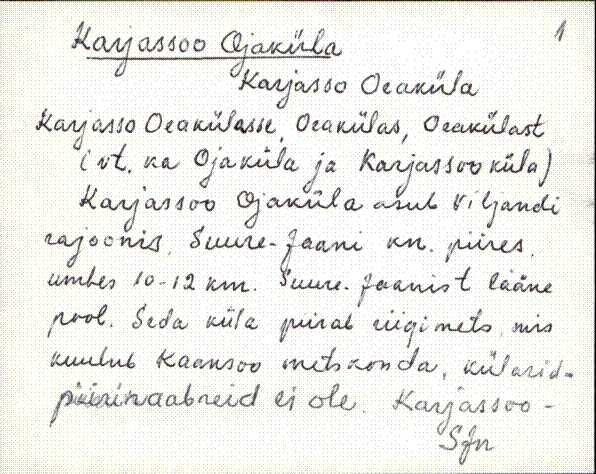 1
Karjassoo Ojaküla
Karjasso Oeaküla
Karjasso Oeakülasse, Oeakülas, Oeakülast
(vt. ka Ojaküla ja Karjassoo küla)
Karjassoo Ojaküla asub Viljandi
rajoonis, Suure-Jaani kn. piires,
umbes 10-12 km. Suure-Jaanist lääne
pool. Seda küla piirab riigimets, mis
kuulub Kaansoo metskonda, külasid-
piirinaabreid ei ole. Karjassoo-
SJn